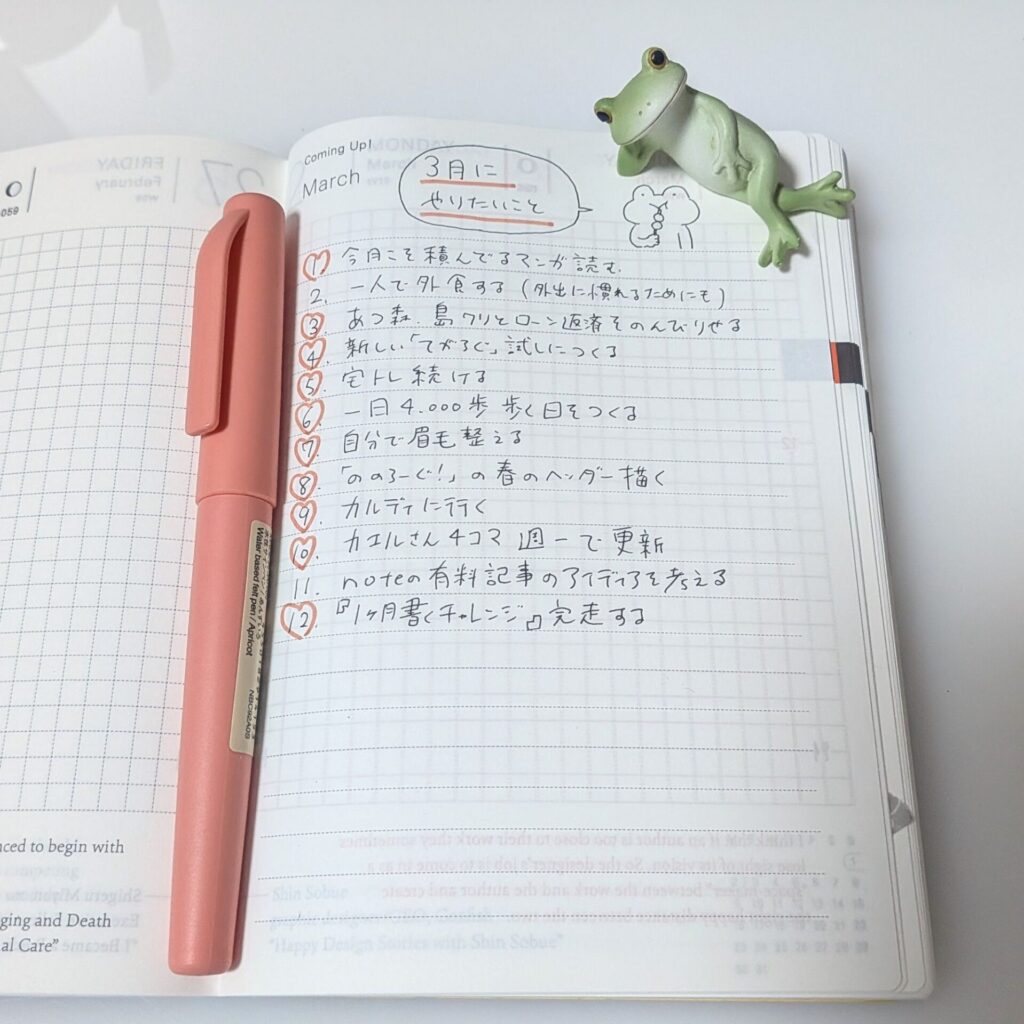 FRIDAY
February
27
059
Coming Up!
March
MONDAY
3月に
やりたいこと
1. 今月こそ積んでるマンガ読む.
2. 一人で外食する(外出に慣れるためにも)
3. あつ森 島クリとローン返済をのんびりやる
4. 新しい「てがろぐ」試しにつくる
5. 宅トレ続ける
6. 一日4.000歩歩く日をつくる
7. 自分で眉毛整える
8. 「ののろーぐ!」の春のヘッダー描く
9. カルディに行く
10. カエルさん4コマ 週一で更新
11. noteの有料記事のアイディアを考える
12. 『1ヶ月書くチャレンジ』完走する
Water based felt pen / Apricot
nced to begin with
ging and Death
al Care”
Shin Sobue
“Happy Design Stories with Shin Sobue”
I think that if an author is too close to their work they sometimes
lose sight of its vision. So the designer's job is to come in as a
“space maker” between the work and the author and create